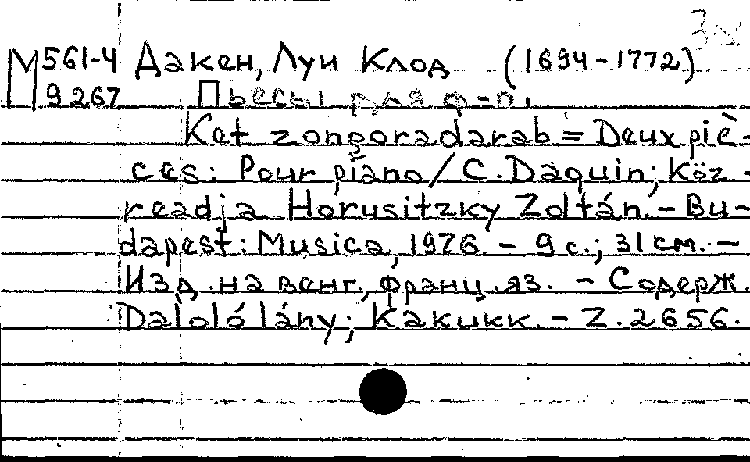 М 561-4 Дакен, Луи Клод (1694-1772)
9267 Пьесы для ф-п.
Ket zongoradarab = Deux piè-
ces: Pour piano / C. Daquin; Köz-
readja Horusitzky Zoltán. - Bu-
dapest: Musica, 1976. - 9 с.; 31 см. -
Изд. на венг., франц. яз. - Содерж.
Daloló lány; Kakukk. - Z. 2656.